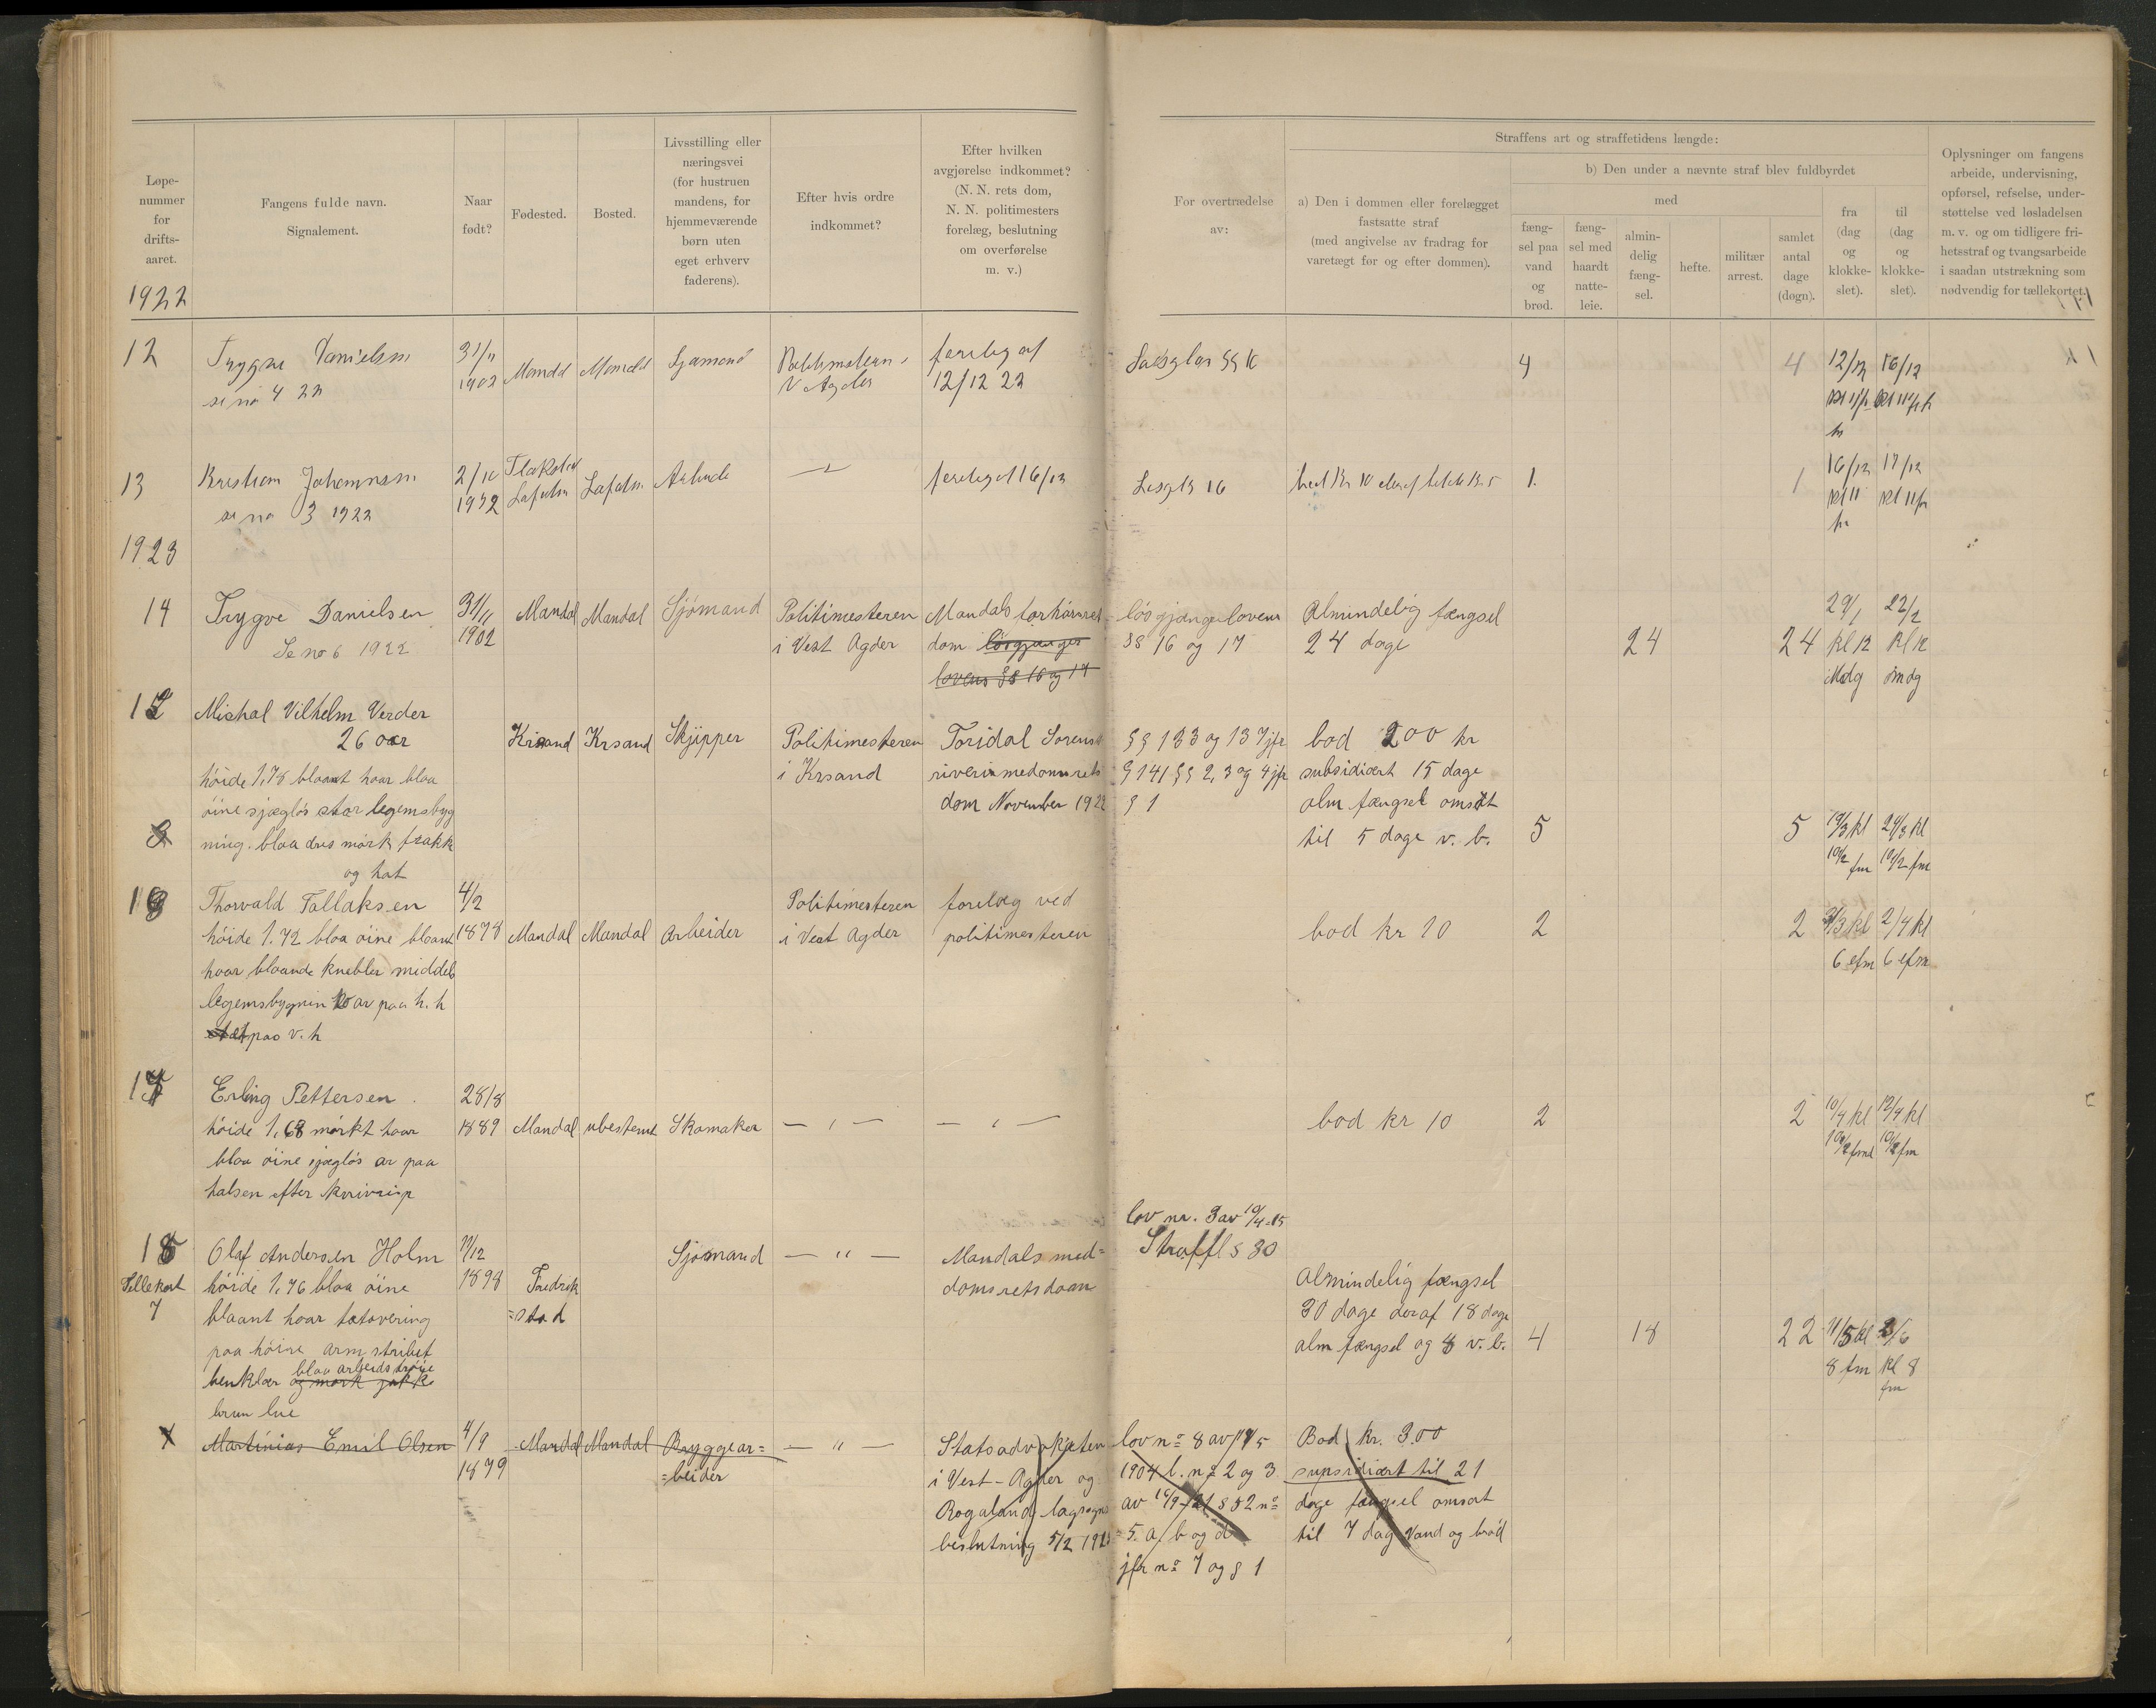 Løpe-
nummer
for
drifts-
aaret.
1922
Fangens fulde navn.
Signalement.
Naar
født?
Fødested.
Bosted.
Livsstilling eller
næringsvei
(for hustruen
mandens, for
hjemmeværende
børn uten
eget erhverv
faderens).
Efter hvis ordre
indkommet?
Efter hvilken
avgjørelse indkommet?
(N. N. rets dom,
N. N. politimesters
forelæg, beslutning
om overførelse
m. v.)
For overtrædelse
av:
Straffens art og straffetidens længde:
a) Den i dommen eller forelægget
fastsatte straf
(med angivelse av fradrag for
varetægt før og efter dommen).
b) Den under a nævnte straf blev fuldbyrdet
med
fæng-
sel paa
vand
og
brød.
fæng-
sel med
haardt
natte-
leie.
almin-
delig
fæng-
sel.
hefte.
militær
arrest.
samlet
antal
dage
(døgn).
fra
(dag
og
klokke-
slet).
til
(dag
og
klokke-
slet).
Oplysninger om fangens
arbeide, undervisning,
opførsel, refselse, under-
støttelse ved løsladelsen
m. v. og om tidligere fri-
hetsstraf og tvangsarbeide
i saadan utstrækning som
nødvendig for tællekortet.
12
Trygve Danielsen
se no 4 22
31/11
1902
Mandal
Mandal
Sjømand
V Agder
forelæg af
12/12 22
4
4
12/12
16/12
13
Kristian Johannsen
se no 3 1922
2/10
forelæg af 16/12
1.
1
16/12
17/12
1923
14
Trygve Danielsen
Se no 6 1922
31/11
1902
Mandal
Mandal
Sjömand
Politimesteren
i Vest Agder
Mandals forhörsret
dom lösgjænger
lovens §§ 16 og 17
lösgjængerlovens
§§ 16 og 17
Almindelig fængsel
24 dage
24
24
29/1
kl 12
Mdg
22/2
kl 12
mdg
15
Mishal Vilhelm Verder
26 aar
höide 1,78 blaant haar blaa
öine sjægløs stor legemsbyg
ning. blaa dres mörk frakk
og hat
Krsand
Krsand
Skjipper
Politimesteren
i Krsand
Toridal Sorensk
riveri meddomsrets
dom November 1922
§§ 133 og 137 jfr
§ 141 §§ 2, 3 og 4 jfr
§ 1
bod 200 kr
subsidiært 15 dage
alm fængsel omsat
til 5 dage v. b.
5
5
19/3 kl
10½ fm
24/3 kl
10½ fm
16
Thorvald Tallaksen
höide 1.72 blaa öine blaant
haar blaande knebler middels
legemsbygnin ar paa h. h
paa v. h
4/2
1878
Mandal
Mandal
Arbeider
Politimesteren
i Vest Agder
forelæg ved
politimesteren
bod kr 10
2
2
31/3 kl
6 efm
2/4 kl
6 efm
17
Erling Pettersen
höide 1,68 mörkt haar
blaa öine sjæglös ar paa
halsen efter
28/8
1889
Mandal
ubestemt
Skomaker
— " —
— " —
bod kr 10
2
2
10/4 kl
10½ fm
12/4 kl
10½ fm
18
Tellekort
7
Olaf Andersen Holm
höide 1.76 blaa öine
blaant haar tatovering
paa höire arm stribet
blaa arbeidströie
benklær og mörk jakke
brun lue
11/12
1898
Fredrik
=stad
Sjömand
— " —
Mandals med=
domsretsdom
lov nr. 3 av 10/4-15
Straffl § 30
Almindelig fængsel
30 dage deraf 18 dage
alm fængsel og 8 v. b.
4
18
22
11/5 kl
8 fm
2/6
kl 8
fm
Martinius Emil Olsen
4/9
1879
Mandal
Mandal
Bryggear=
=beider
— " —
Statsadvokaten
i Vest-Agder og
Rogaland lagsogns
beslutning 5/2 1923
lov no 8 av
1904 l. no 2 og 3
§ 52 no
5. a, b og d
jfr no 7 og § 1
Bod kr. 300
supsidiært til 21
dage fængsel omsat
til 7 dag Vand og bröd